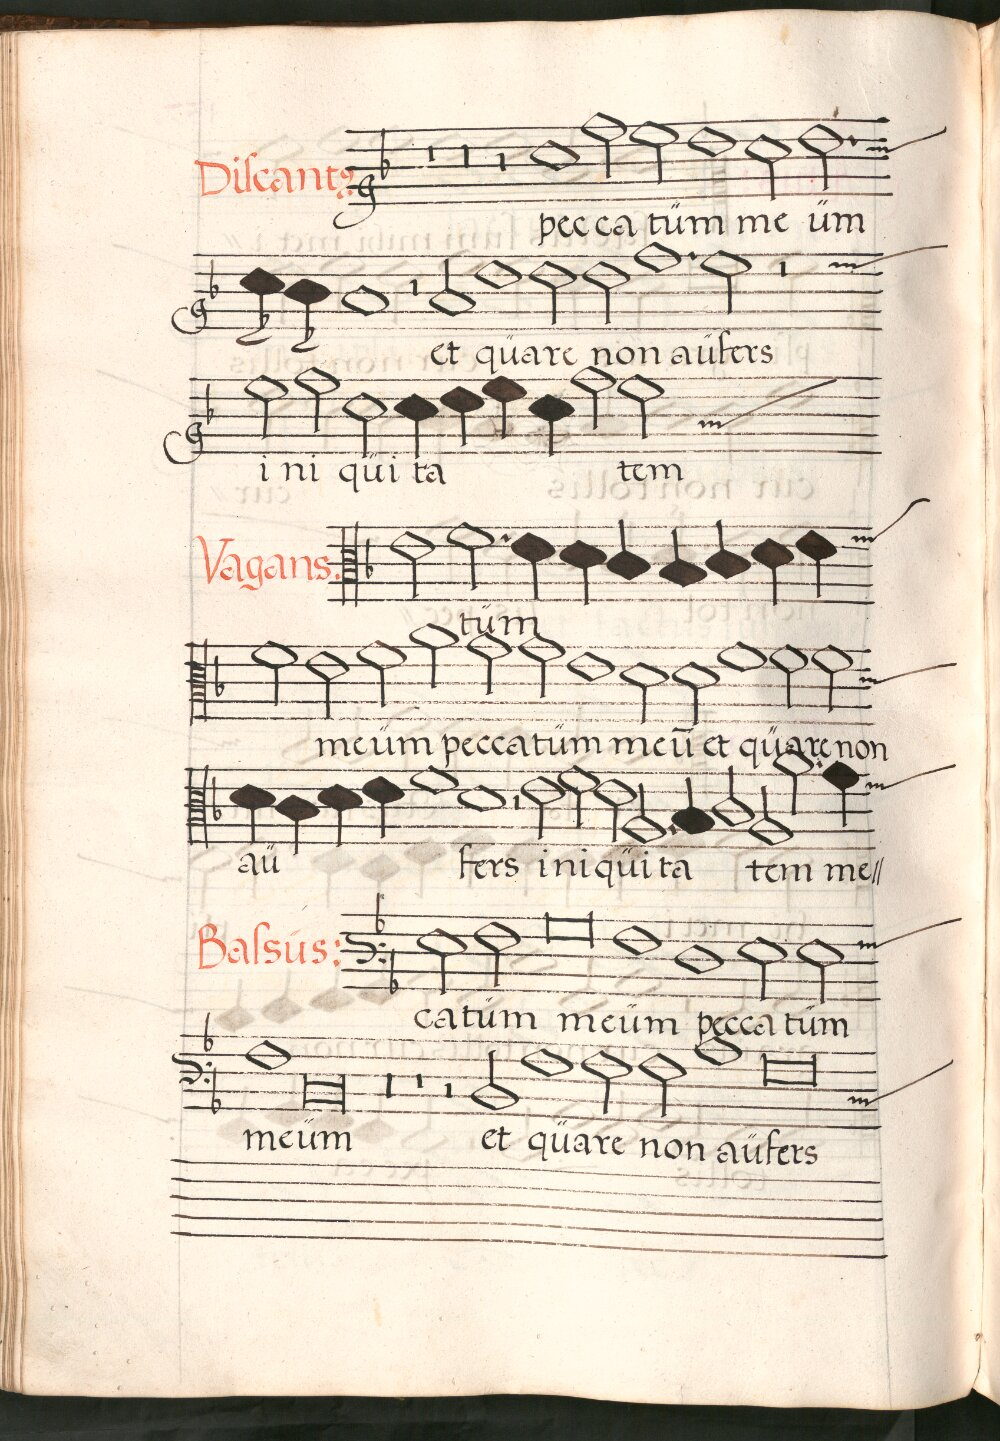 Discantꝰ:
pecca tüm me üm
et qüare non aüfers
ini qüi ta tem
Vagans.
tüm
meüm peccatüm meū et qüare non
aü fers iniqüi ta tem me//
Bassüs:
catüm meüm pecca tüm
meüm et qüare non aüfers